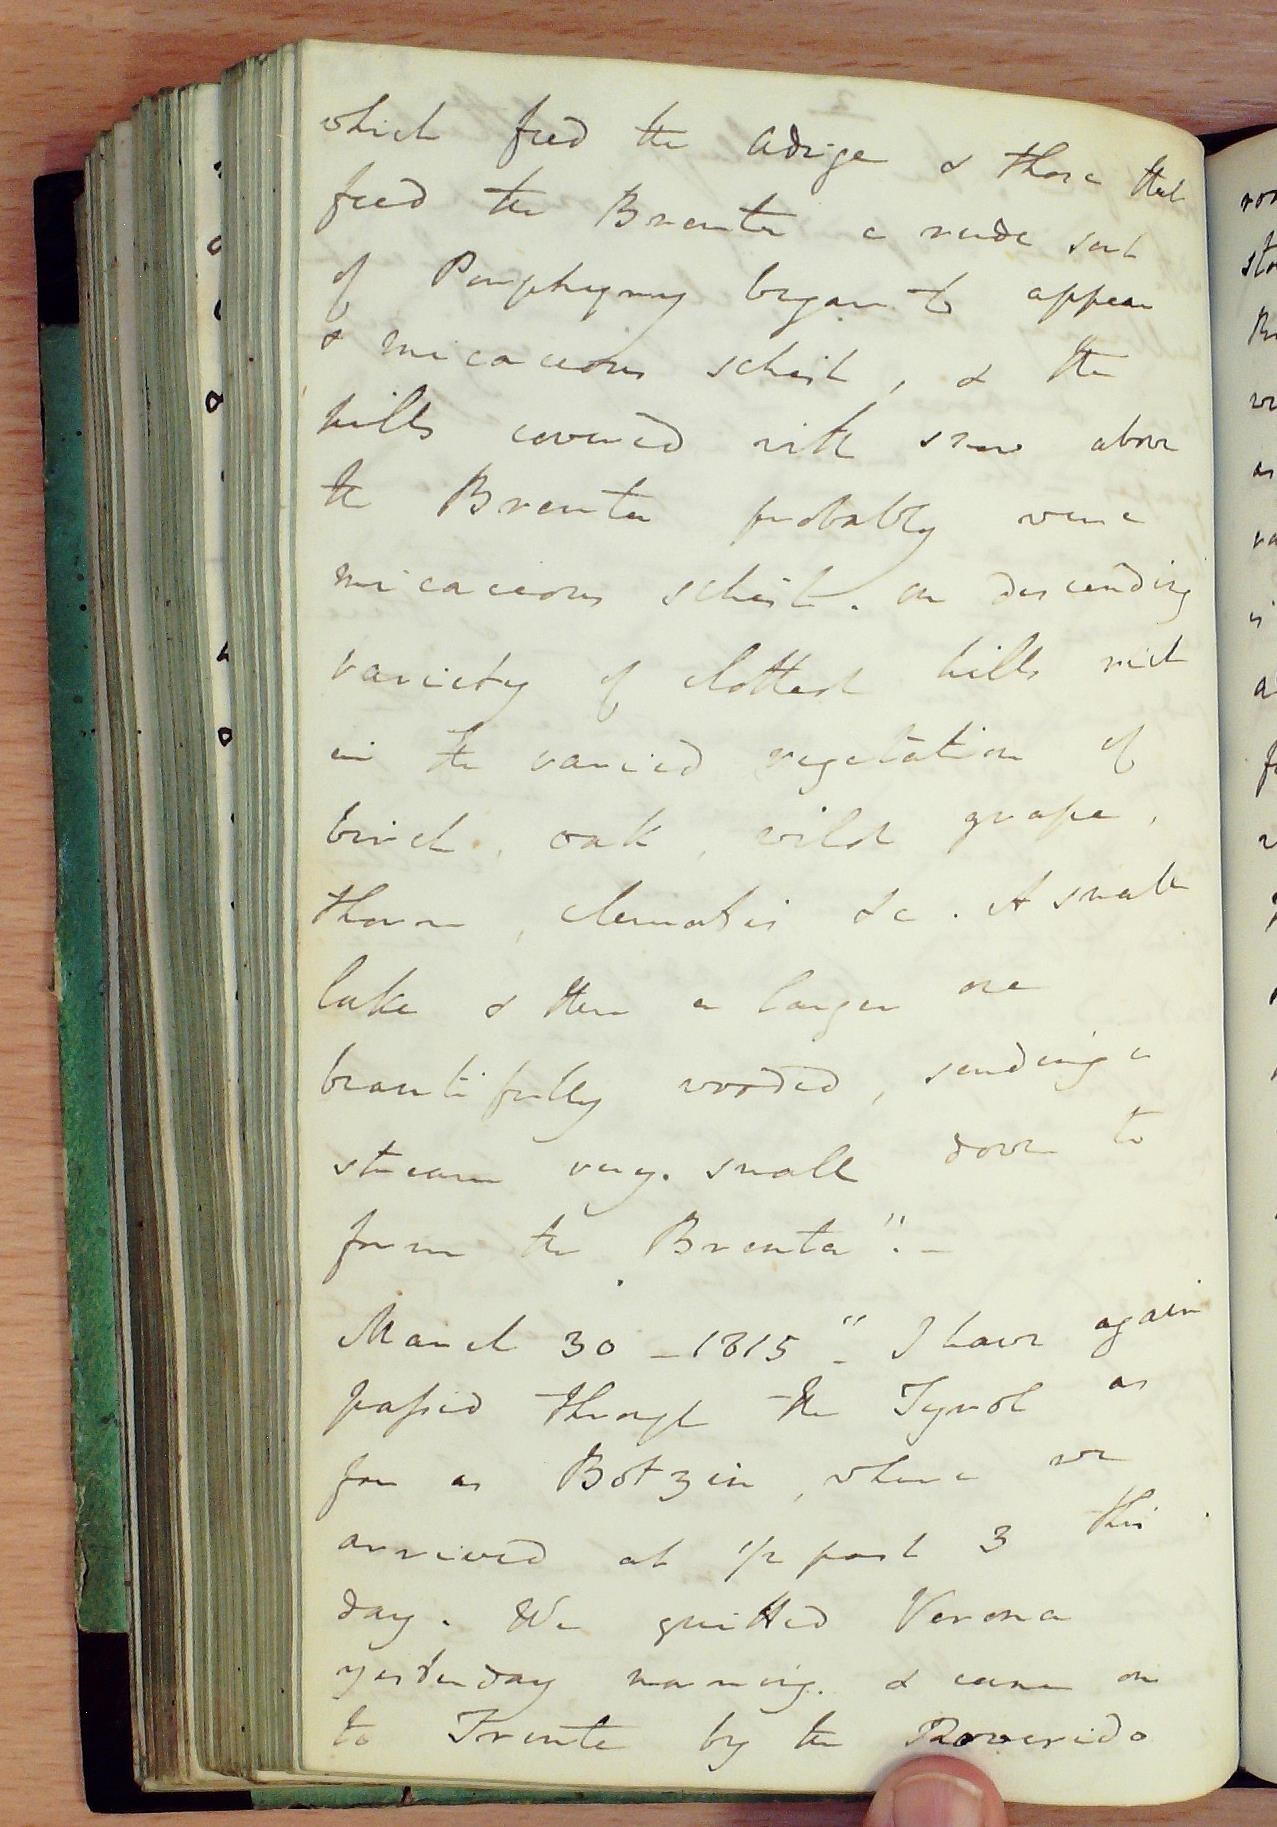 which feed the Adige & those that
feed the Brenta a rude sort
of Porphyry began to appear
& micaceous schist, & the
hills covered with snow above
the Brenta probably were
micaceous schist. On descending
variety of hills rich
in the varied vegetation of
birch, oak, wild grape,
thorn, clematis &c. A small
lake & then a larger one
beautifully wooded, sending a
stream very small down to
form the Brenta".–
March 30 – 1815 – "I have again
passed through the Tyrol as
far as Botzin, where we
arrived at 1/2 past 3 this
day. We quitted Verona
yesterday morning. & came on
to Trente by the Roverido